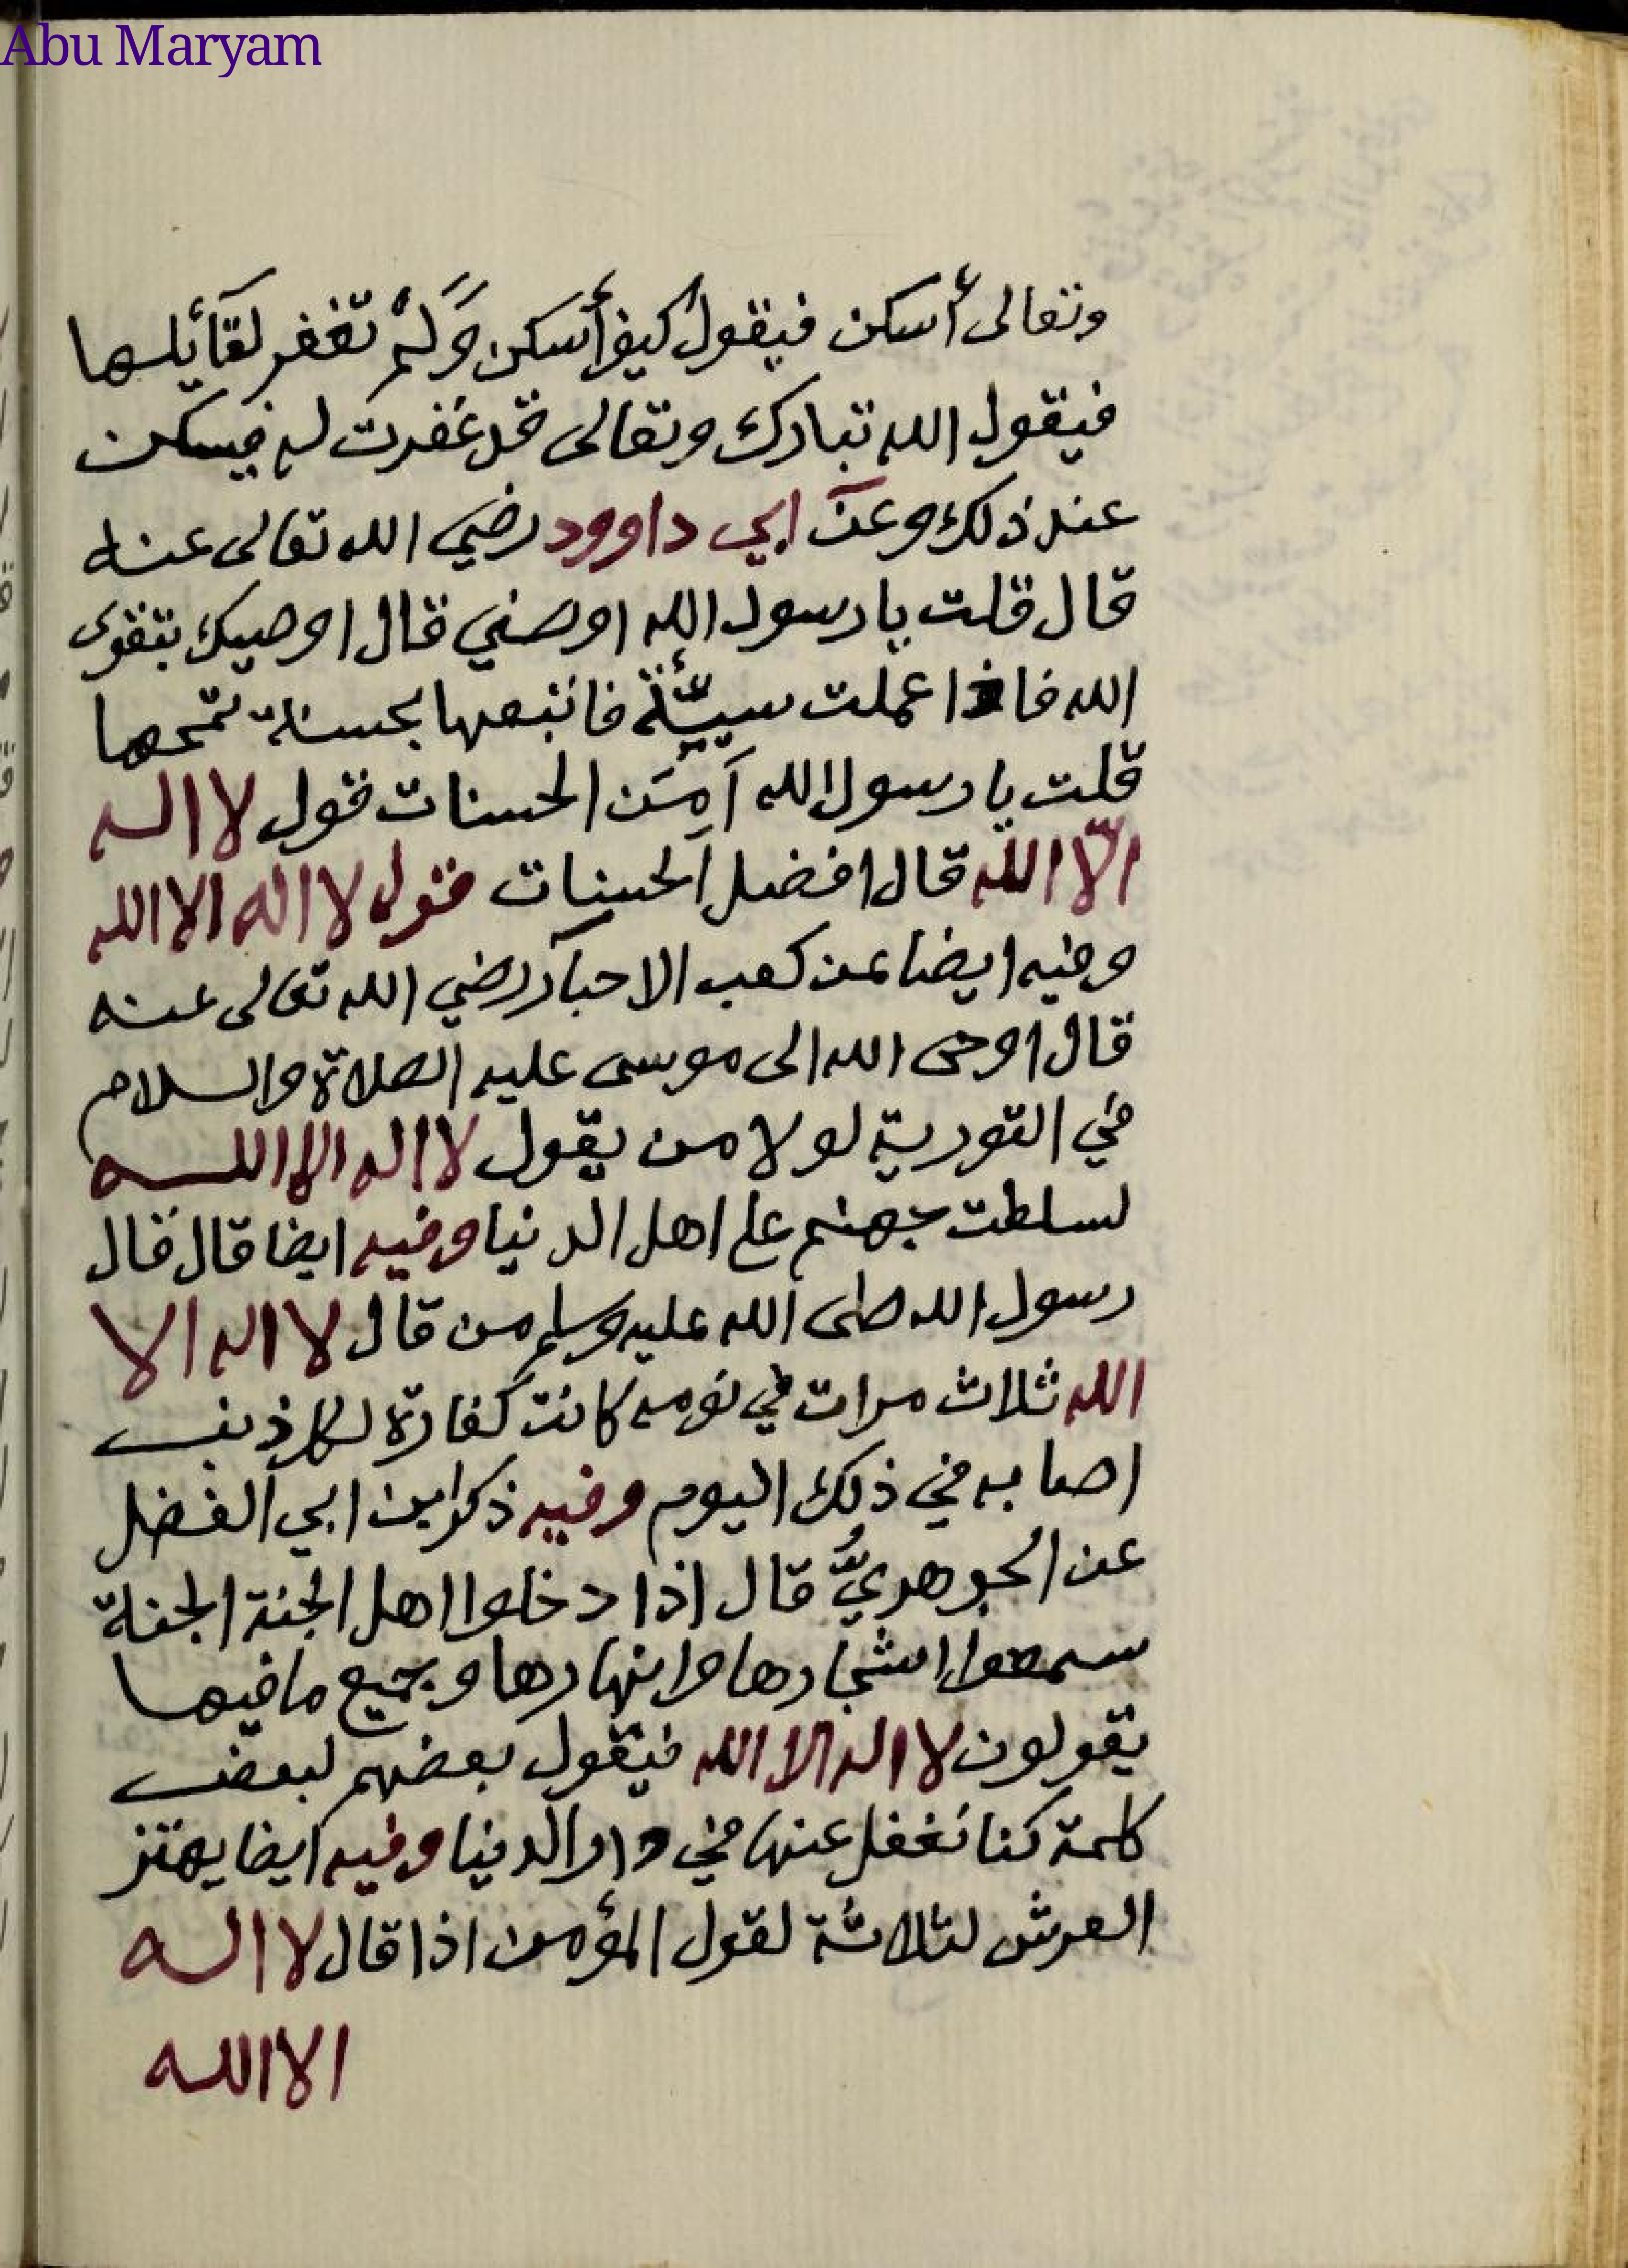 Abu Maryam
وتعالى أسكن فيقول كيف أسكن وَلَمْ تغفر لقآئلها
فيقول الله تبارك وتعالى قد غفرت له فيسكن
عند ذلك وعن ابي داوود رضي الله تعالى عنه
قال قلت يا رسول الله اوصني قال اوصيك بتقوى
الله فاذا عملت سيئة فاتبعها بحسنة تمحها
قلت يا رسول الله أَمِنَ الحسنات قول لا اله
الّا اللّه قال افضل الحسنات قول لا اله الا الله
وفيه ايضا عن كعب الاحبار رضي الله تعالى عنه
قال اوحى الله الى موسى عليه الصلاة والسلام
في التورية لولا من يقول لا اله الا الله
لسلطت جهنم على اهل الدنيا وفيه ايضا قال قال
رسول الله صلى الله عليه وسلم من قال لا اله الا
الله ثلاث مرات في يومه كانت كفارة لكل ذنب
اصابه في ذلك اليوم وفيه ذكر ابن ابي الفضل
عن الجوهريُّ قال اذا دخلوا اهل الجنة الجنة
سمعوا اشجارها وانهارها وجميع ما فيها
يقولون لا اله الا الله فيقول بعضهم لبعض
كلمة كنا نغفل عنها في دار الدنيا وفيه ايضا يهتز
العرش لثلاثة لقول المؤمن اذا قال لا اله
الا الله